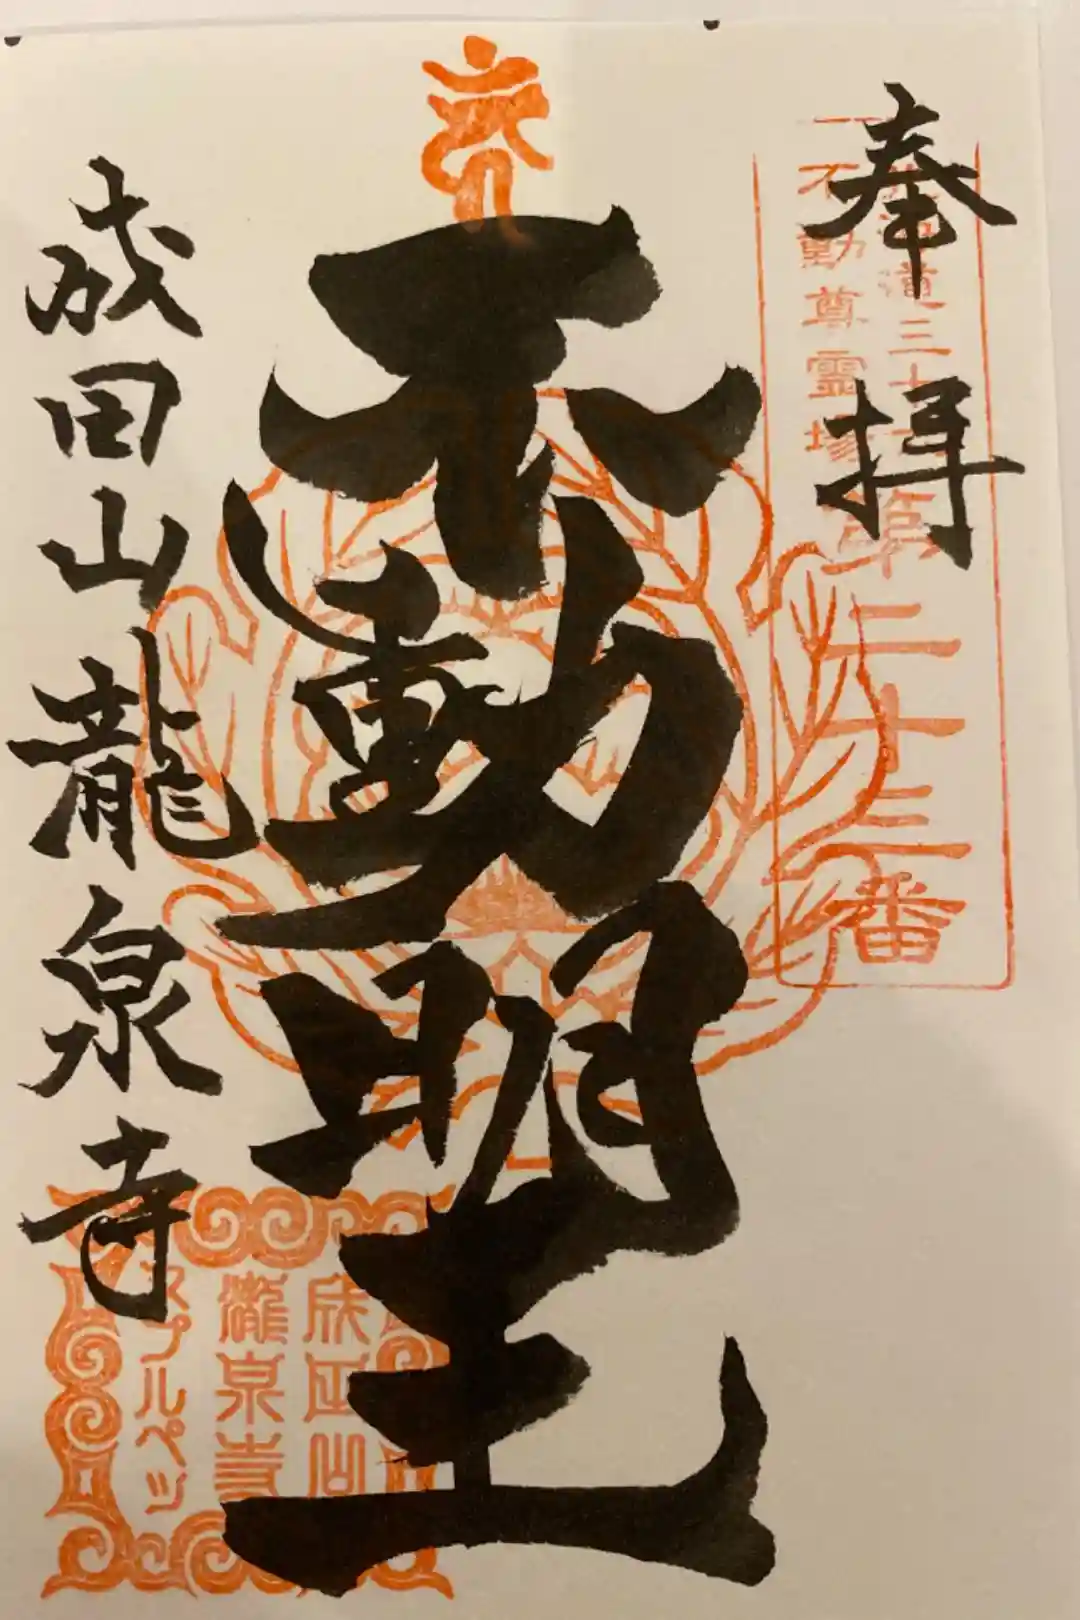 奉拝
北海道三十六
不動尊霊場
第二十三番
不動明王
成田山龍泉寺
成田山
瀧泉寺
ヌプルペツ